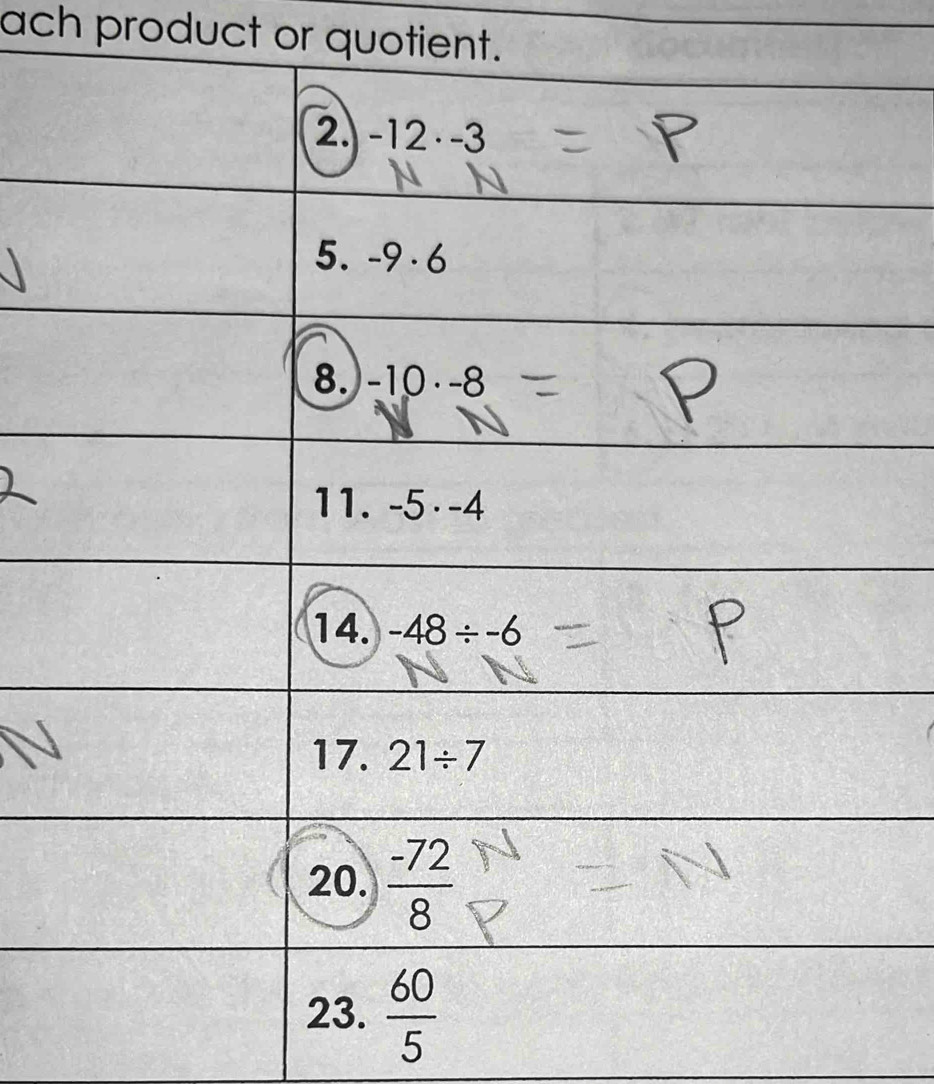 ach product or quotient.
2. -12 · -3 = P
N N
5. -9 · 6
N
8. -10 · -8 = P
N N
11. -5 · -4
2
14. -48 ÷ -6 = P
N N
17. 21 ÷ 7
N
20. -72/8 N = N
P
23. 60/5